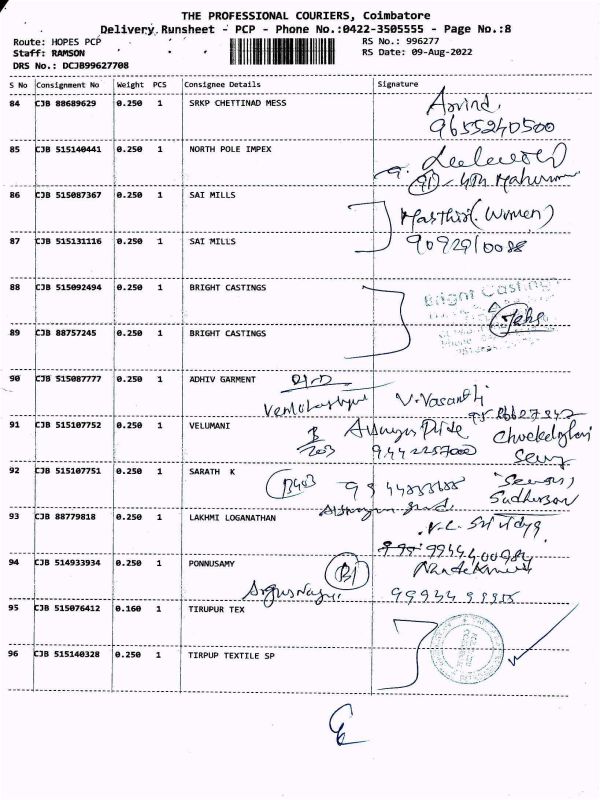 THE PROFESSIONAL COURIERS, Coimbatore
Delivery Runsheet - PCP - Phone No.:0422-3505555 - Page No.:8
Route: HOPES PCP RS No.: 996277
Staff: RAMSON RS Date: 09-Aug-2022
DRS No.: DCJB99627708
S No Consignment No Weight PCS Consignee Details Signature
84 CJB 88689629 0.250 1 SRKP CHETTINAD MESS Arvind.
9655240500
85 CJB 515140441 0.250 1 NORTH POLE IMPEX
86 CJB 515087367 0.250 1 SAI MILLS
(Women)
87 CJB 515131116 0.250 1 SAI MILLS 9092910088
88 CJB 515092494 0.250 1 BRIGHT CASTINGS Bright Castings
89 CJB 88757245 0.250 1 BRIGHT CASTINGS
90 CJB 515087777 0.250 1 ADHIV GARMENT V.Vasanthi
91 CJB 515107752 0.250 1 VELUMANI B 203
92 CJB 515107751 0.250 1 SARATH K B403
Sudharsan
93 CJB 88779818 0.250 1 LAKHMI LOGANATHAN
94 CJB 514933934 0.250 1 PONNUSAMY B1
95 CJB 515076412 0.160 1 TIRUPUR TEX
96 CJB 515140328 0.250 1 TIRPUP TEXTILE SP